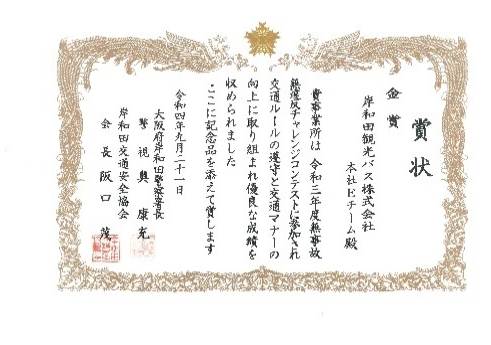 賞状
金賞
岸和田観光バス株式会社
本社Eチーム殿
貴事業所は令和三年度無事故
無違反チャレンジコンテストに参加され
交通ルールの遵守と交通マナーの
向上に取り組まれ優良な成績を
収められました
ここに記念品を添えて賞します
令和四年九月二十一日
大阪府岸和田警察署長
警視 奥 康充
岸和田交通安全協会
会長 阪口 茂